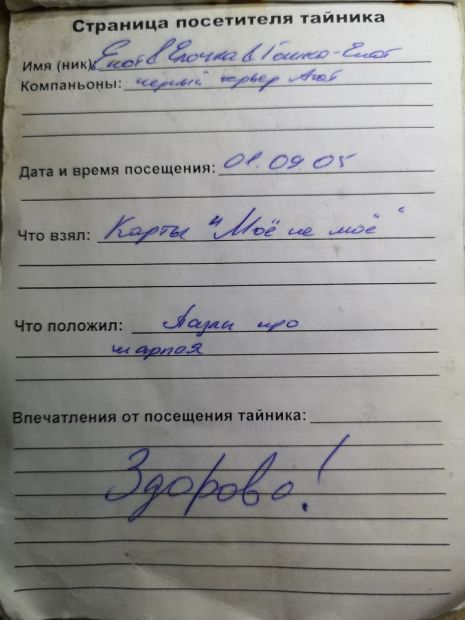 Страница посетителя тайника
Имя (ник): Енот & Ёлочка & Гошка-Енот
Компаньоны: чёрный терьер Агат
Дата и время посещения: 01.09.05
Что взял: Карты "Моё не моё"
Что положил: Пазлы про
шарпея
Впечатления от посещения тайника:
Здорово!